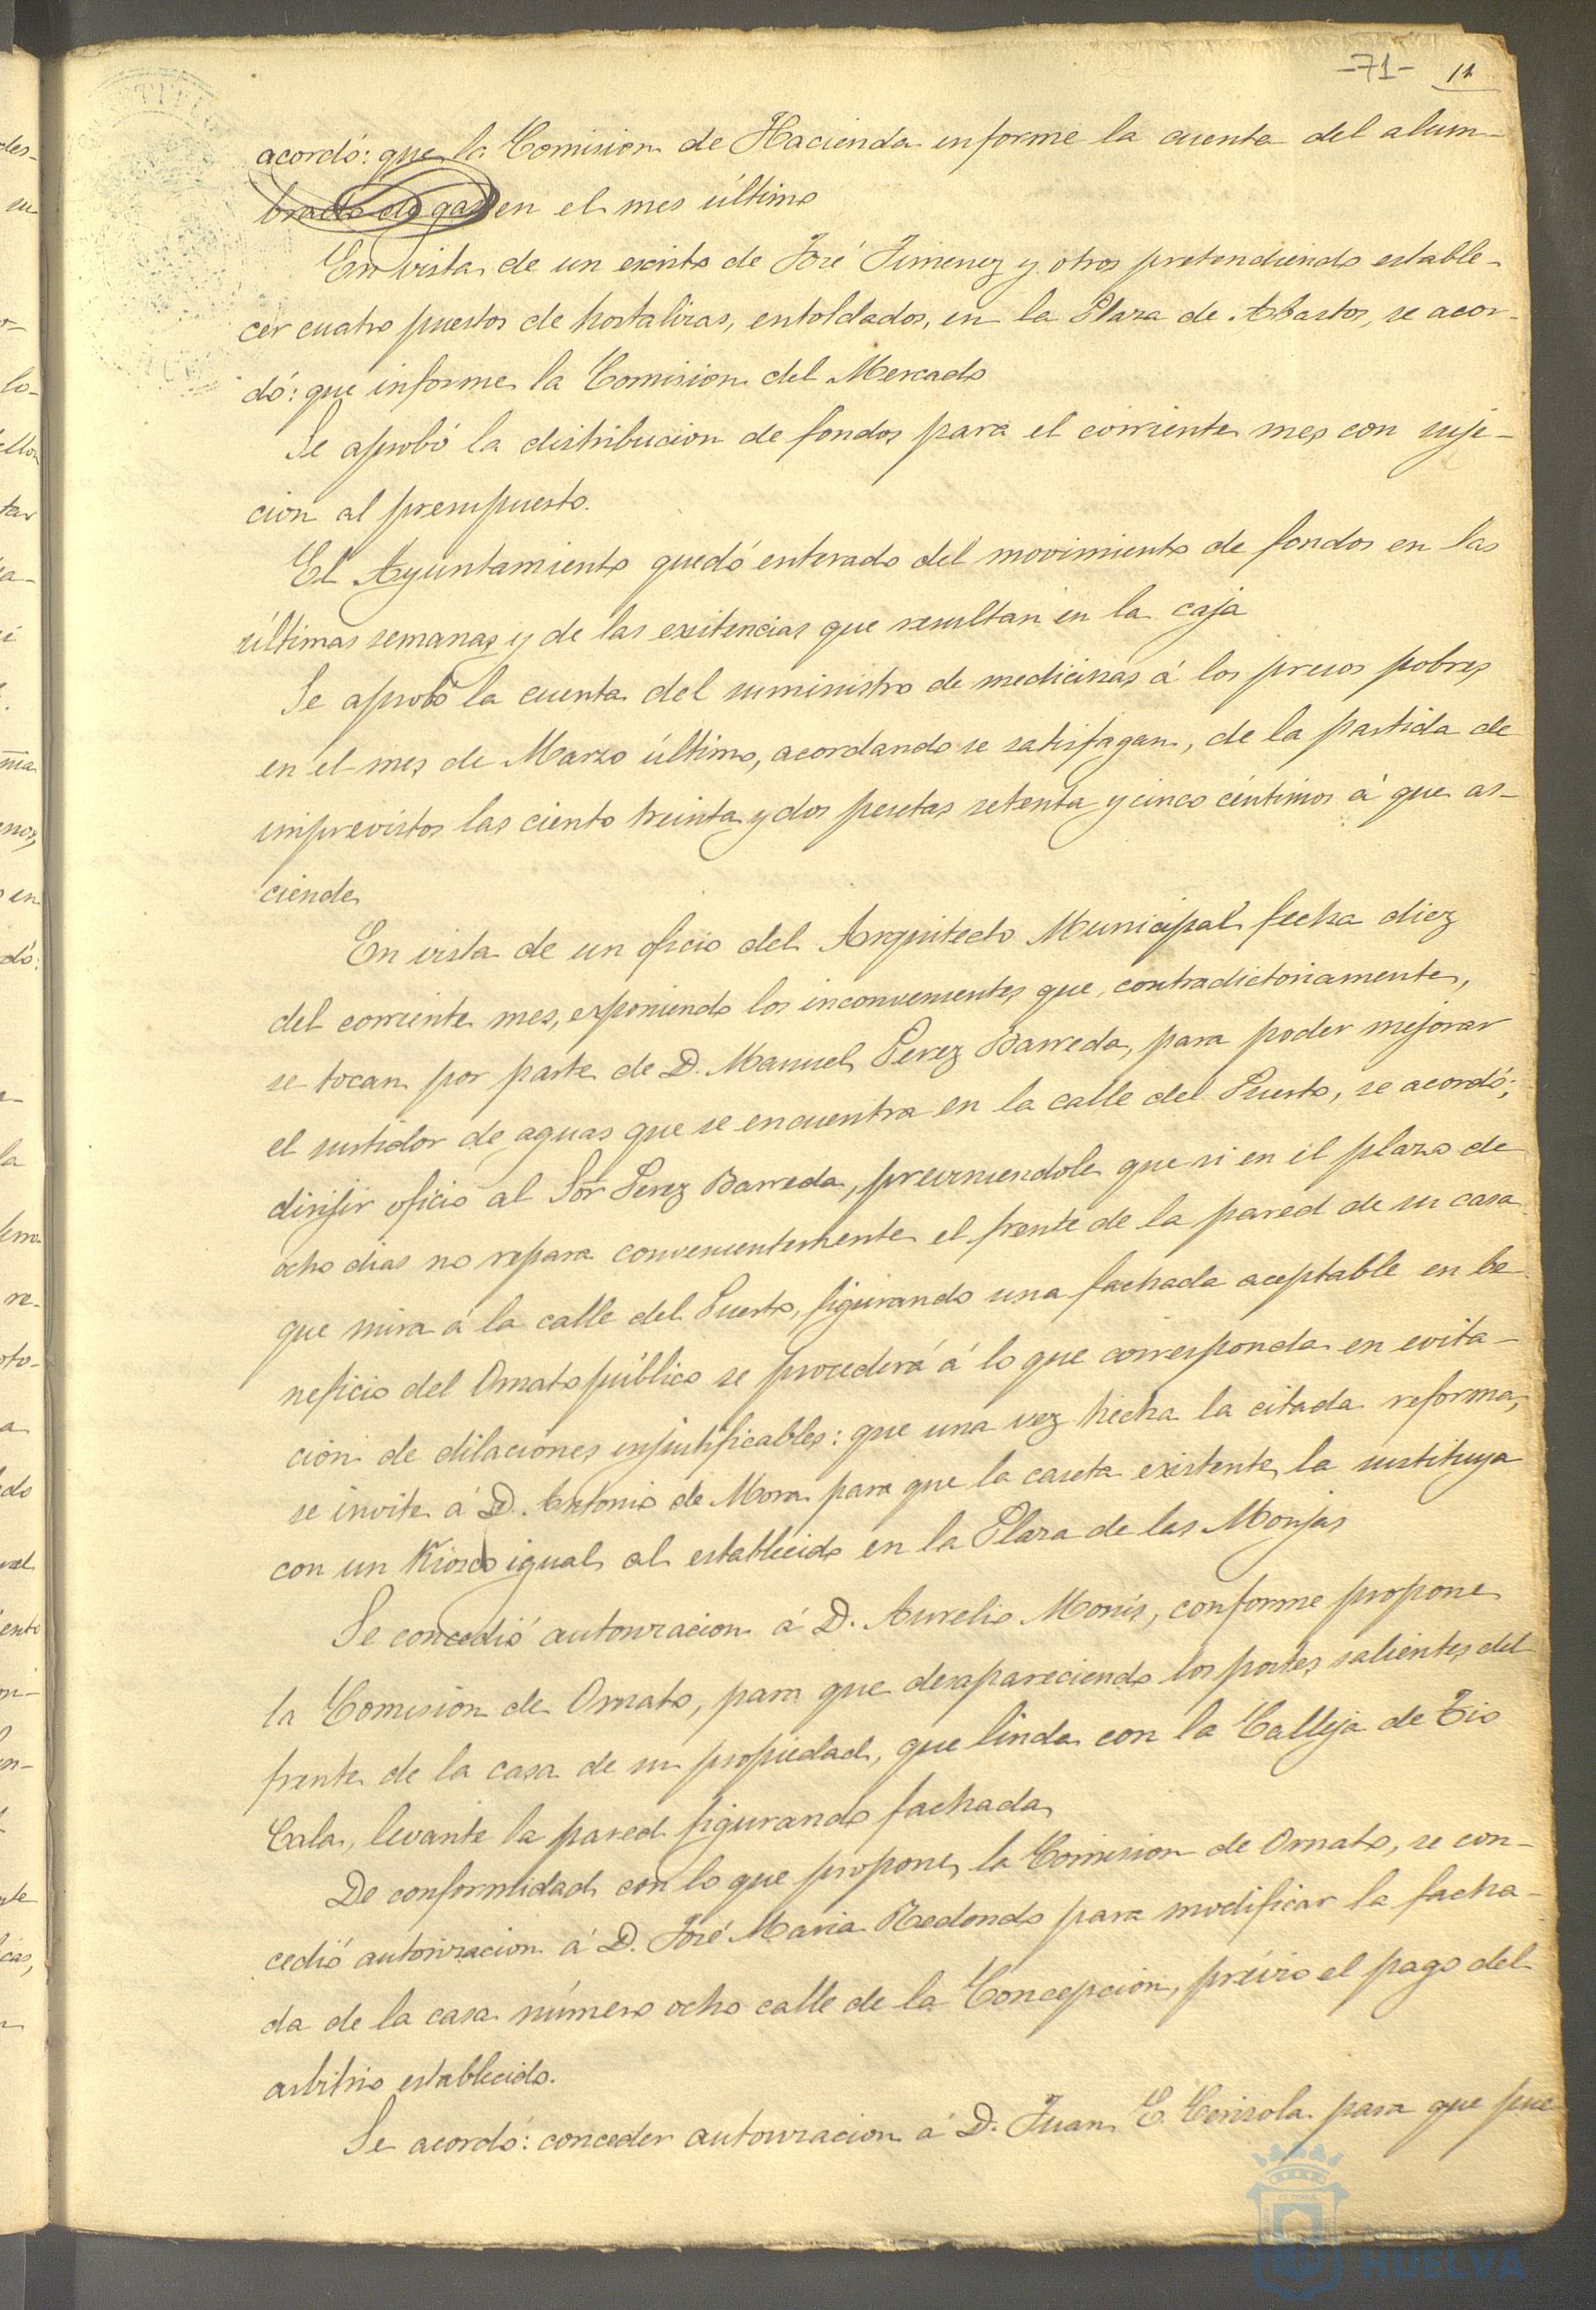 -71- 11
acordó: que la Comision de Hacienda informe la cuenta del alum-
brado de gas en el mes último
En vista de un escrito de José Jimenez y otros pretendiendo estable-
cer cuatro puestos de hortalizas, entoldados, en la Plaza de Abastos, se acor-
dó: que informe la Comision del Mercado
Se aprobó la distribucion de fondos para el corriente mes con suje-
cion al presupuesto.
El Ayuntamiento quedó enterado del movimiento de fondos en las
últimas semanas y de las existencias que resultan en la caja
Se aprobó la cuenta del suministro de medicinas á los presos pobres
en el mes de Marzo último, acordando se satisfagan, de la partida de
imprevistos las ciento treinta y dos pesetas setenta y cinco céntimos á que as-
ciende
En vista de un oficio del Arquitecto Municipal fecha diez
del corriente mes, exponiendo los inconvenientes que, contradictoriamente,
se tocan por parte de D. Manuel Perez Barreda, para poder mejorar
el surtidor de aguas que se encuentra en la calle del Puerto, se acordó;
dirijir oficio al Sor Perez Barreda, previniendole que si en el plazo de
ocho dias no repara convenientemente el frente de la pared de su casa
que mira á la calle del Puerto, figurando una fachada aceptable en be
neficio del Ornato público se procederá á lo que corresponda en evita-
ción de dilaciones injustificables: que una vez hecha la citada reforma,
se invite á D. Antonio de Mora para que la caseta existente la sustituya
con un Kiosco igual al establecido en la Plaza de las Monjas
Se concedió autorizacion á D. Aurelio Monís, conforme propone
la Comision de Ornato, para que desapareciendo los postes salientes del
frente de la casa de su propiedad, que linda con la Calleja de Tio
Cala, levante la pared figurando fachada
De conformidad con lo que propone la Comision de Ornato, se con-
cedió autorizacion á D. José Maria Redondo para modificar la facha-
da de la casa número ocho calle de la Concepcion, prévio el pago del
arbitrio establecido.
Se acordó: conceder autorizacion á D. Juan C. Cerisola para que pue
HUELVA